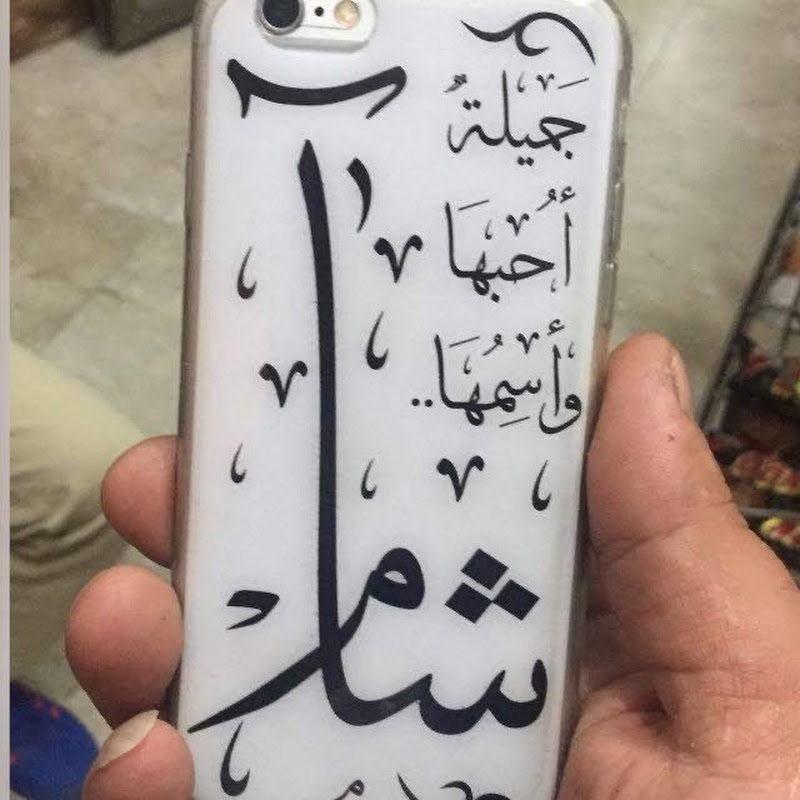 جَميلةٌ
أُحبهَا
وأسِمُهَا..
شام